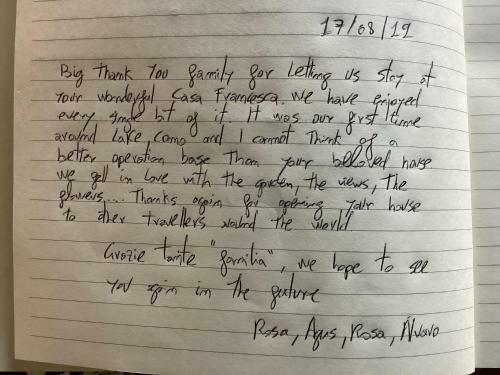 17/08/19
Big Thank you family for letting us stay at
your wonderful Casa Francesca. We have enjoyed
every single bit of it. It was our first time
around Lake Como and I cannot think of a
better operation base than your beloved house
We fell in love with the garden, the views, the
flowers... Thanks again for opening your house
to other travellers around the world
Grazie tante "familia", we hope to see
you again in the future
Rosa, Agus, Rosa,